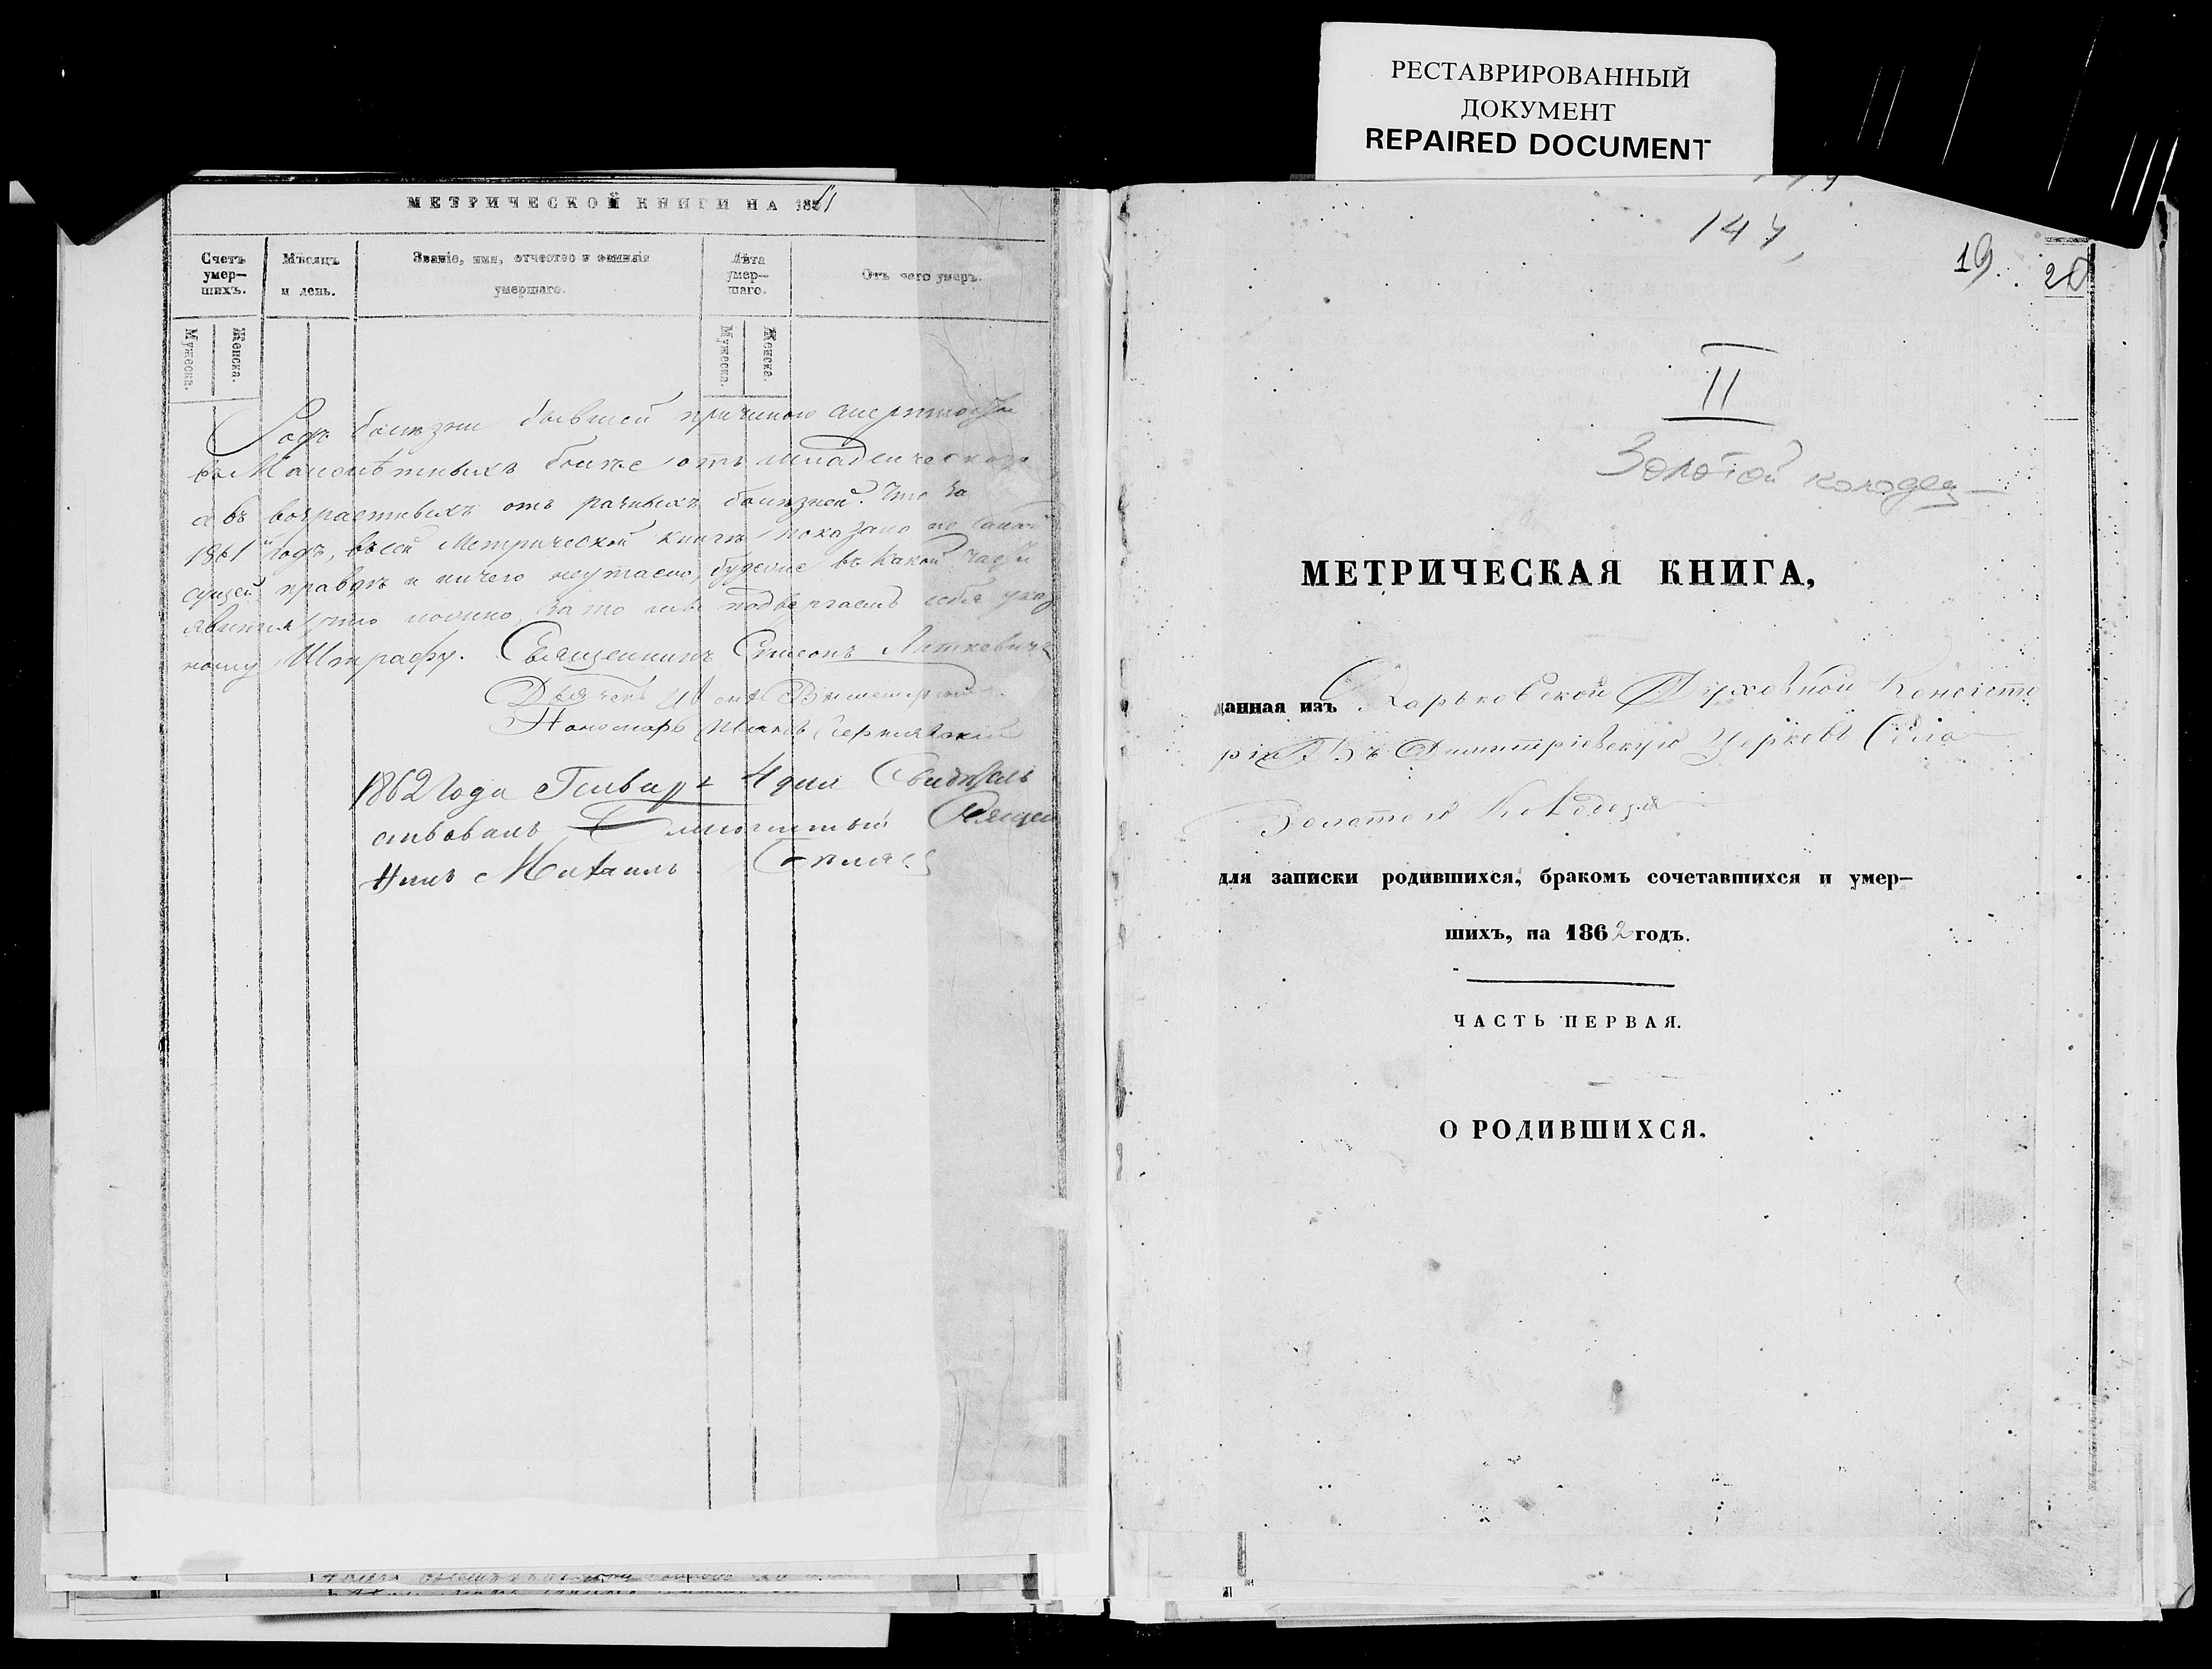 РЕСТАВРИРОВАННЫЙ
ДОКУМЕНТ
REPAIRED DOCUMENT
МЕТРИЧЕСКОЙ КНИГИ НА 1861
Счетъ умер—шихъ.
Мѣсяцъ и день.
Званіе, имя, отчество и фамилія умершаго.
Лѣта умер—шаго.
Отъ чего умеръ.
Мужеска.
Женска.
Мужеска.
Женска.
Родъ болѣзни бывшей причиною смертности
въ Малолѣтныхъ болѣе отъ младенческаго
а въ возрастныхъ отъ разныхъ болѣзней. Что за
1861й годъ, въ сей Метрической книгѣ показано по самой
сущей правдѣ и ничего неутаено, буде же въ какой части
явится что ложно, за то мы подвергаемъ себя указ
ному Штрафу. Священникъ Симеонъ
Дьячекъ
Пономарь Иванъ Чернявскій
1862 года Генваря 4 дня Свидѣтель
ствовалъ Благочинный Священ
никъ Михаилъ
144
19.
20
II
Золотой колодез
МЕТРИЧЕСКАЯ КНИГА,
данная изъ Харьковской Духовной Консисто
ріи Въ Димитріевскую Церковь Села
Золотой Колодезя
для записки родившихся, бракомъ сочетавшихся и умер—
шихъ, на 1862 годъ.
ЧАСТЬ ПЕРВАЯ.
О РОДИВШИХСЯ.